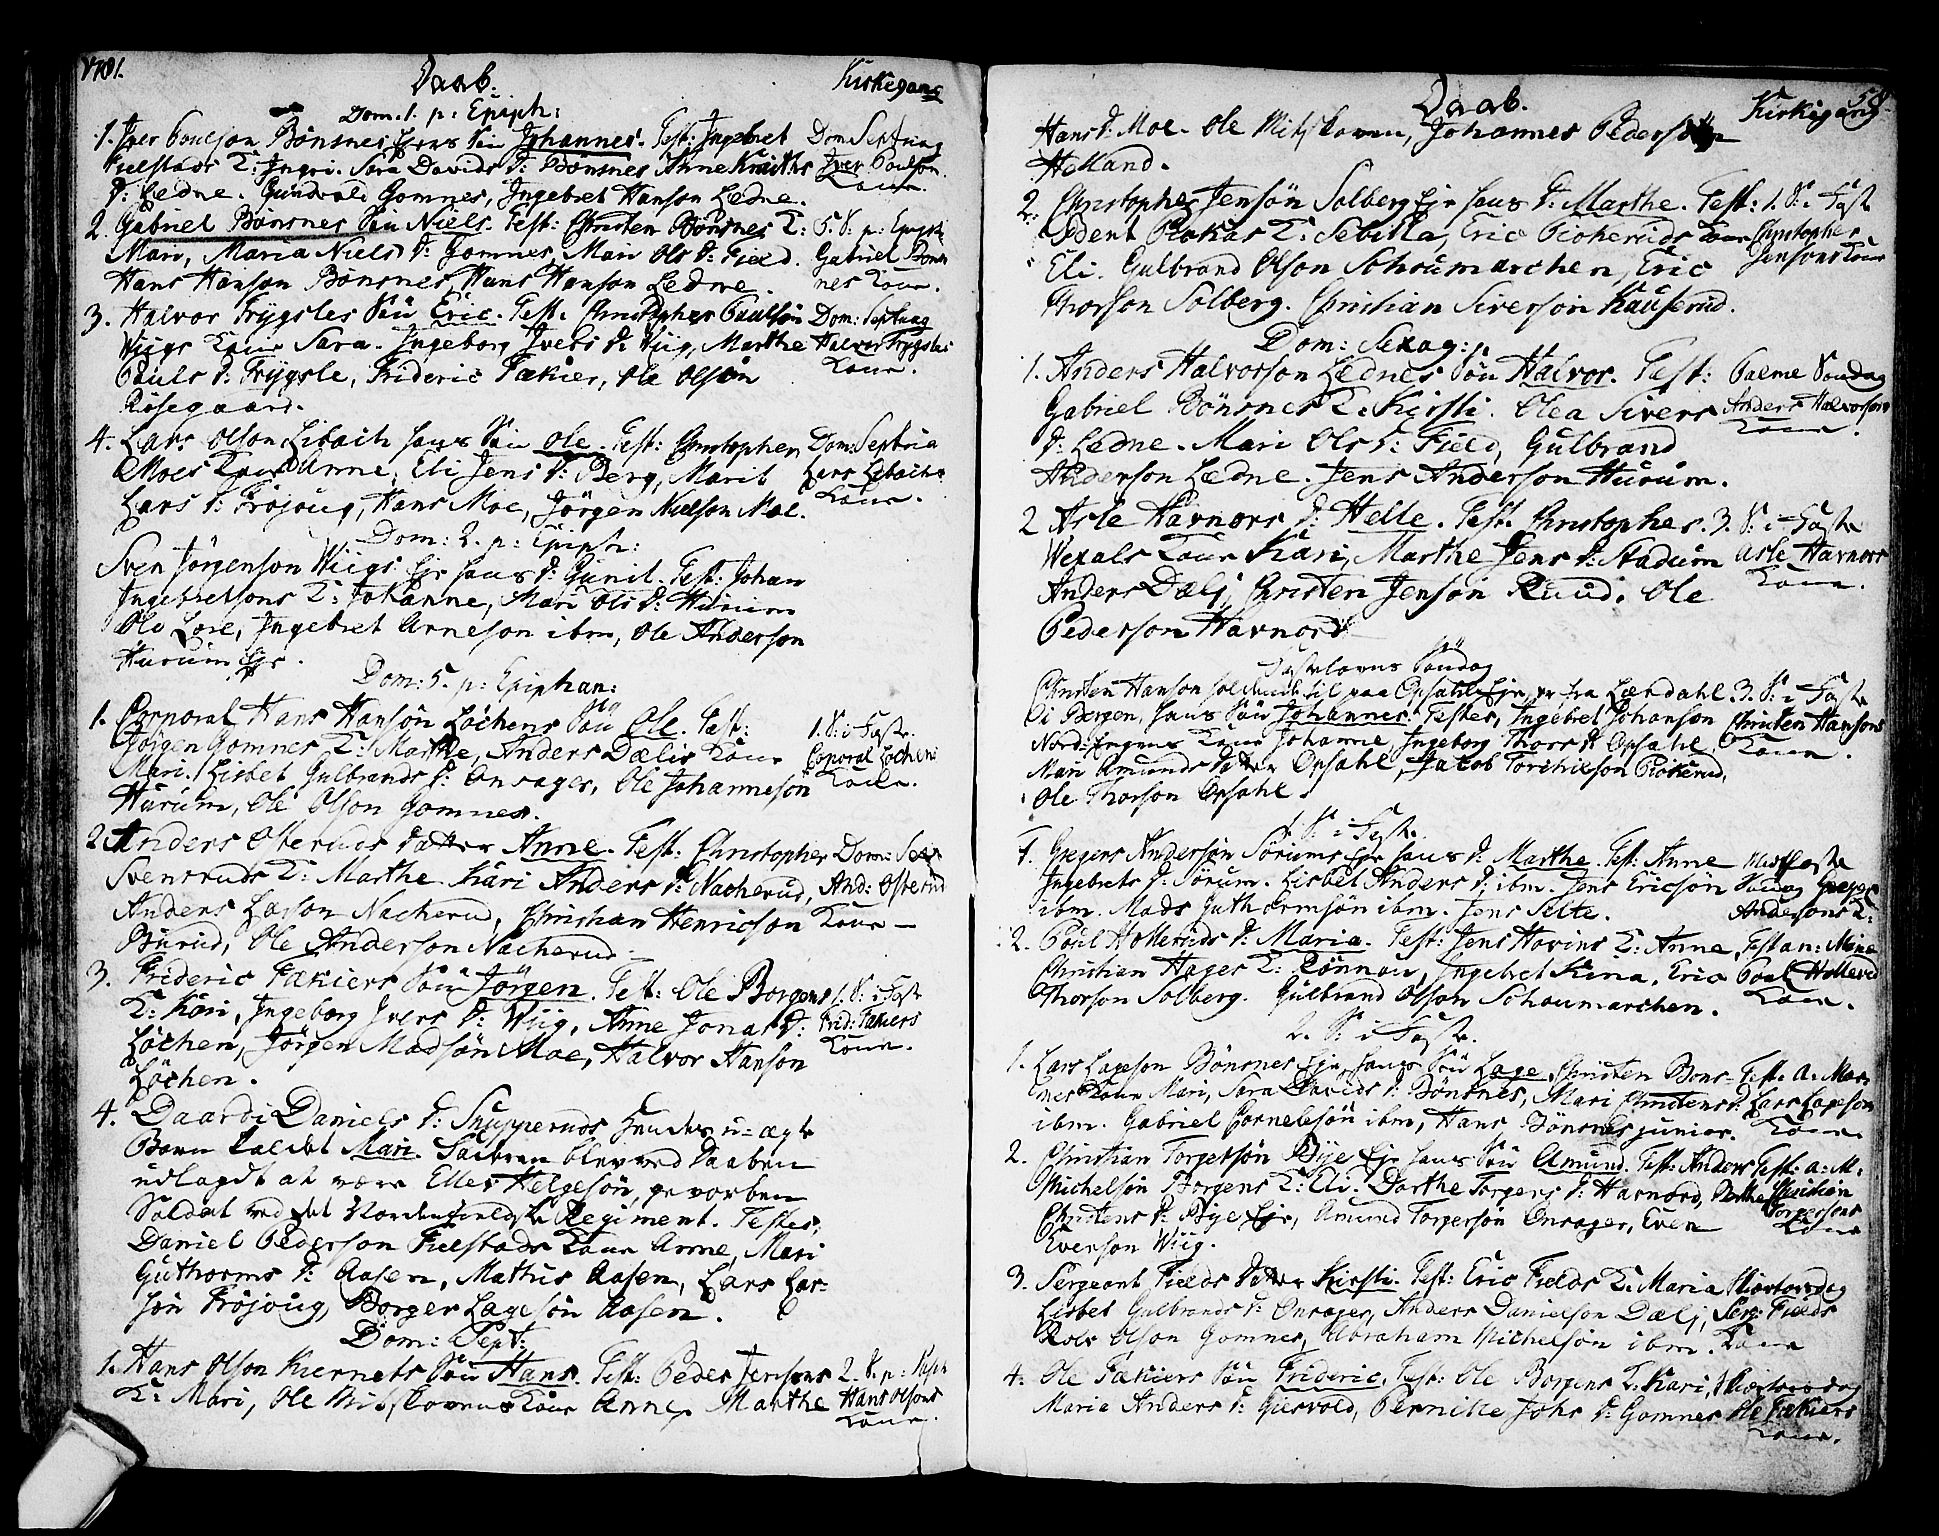 1781.
Daab.
Kirkegang
Dom. 1. p: Epiph:
1. Iver Poulson Bønsnes Eyes Søn Johannes. Test: Ingebret
Fielstads K: Ingri. Sara Davids D: Bønsnes Anne
D: Ledne. Gundvald Gomnes, Ingebret Hanson Ledne.
Dom Septuag
Iver Paulson
Kone.
2. Gabriel Bønsnes Søn Niels. Test: Christen Bønsnes K:
Mari, Maria Niels D: Gomnes, Mari Ols D: Field.
Hans Hanson Bønsnes, Hans Hanson Ledne.
5. S: p: Epiph
Gabriel Bøns
nes Kone.
3. Halvor Frygsles Søn Eric. Test. Christopher Paulsøn
Wiigs Kone Sara. Ingeborg Ivers D: Wiig, Marthe
Pauls D: Frygsle, Frideric Fækier, Ole Olsøn
Røsegaard.
Dom: Septuag
Halvor Frygsles
Kone.
4. Lars Olson Libach hans Søn Ole. Test: Christopher
Moes Kone Anne, Eli Jens D: Berg, Marit
Lars D: Frøjoug, Hans Moe, Jörgen Nielson Moe.
Lars Libachs
Kone.
Dom: 2. p: Epiph:
Sven Jørgenson Wiigs Eje hans D: Gunil. Test: Johan
Ingebretsons K: Johanne, Mari Ols D: Hurum
Ole Lore, Ingebret Arneson ibm, Ole Anderson
Hurum Eje.
Dom: 5. p: Epiphan:
1. Corporal Hans Hansøn Løchens Søn Ole. Test:
Jørgen Gomnes K: Marthe, Anders Dælis Kone
Mari. Lisbet Gulbrands D: Onsager, Ole Johanneson
Hurum, Ole Olson Gomnes.
1. S: i Faste.
Coporal Løchens
Kone.
2. Anders Osteruds Datter Anne. Test: Christopher
Svensruds K: Marthe. Kari Anders D: Nacherud,
Anders Larson Nacherud, Christian Henricson
Burud, Ole Anderson Nacherud
And: Osterud
Kone
3. Frideric Fækiers Søn Jørgen. Test: Ole Borgens
K: Kari, Ingeborg Ivers D: Wiig, Anne Jonas D:
Løchen, Jørgen Madsøn Moe, Halvor Hanson
Løchen.
1. S: i Faste
Frid: Fækiers
Kone.
4. Daardi Daniels D: Snupperuds Hendes u=ægte
Barn kaldet Mari. Faderen blev ved Daaben
udlagdt at være Elles Helgesøn, gevorben
Soldat ved det Nordenfieldske Regiment. Testes,
Daniel Pederson Fielstads Kone Anne, Mari
Guthorms D: Aasen, Mathis Aasen, Lars Lar-
søn Frøjoug, Borger Lagesøn Aasen.
Dom: Sept:
1. Hans Olson Kiernets Søn Hans. Test: Peder Jensons
K: Mari, Ole Midskovens Kone Anne, Marthe
Hans Olsons
Kone.
Daab.
Kirkegang
Hans D: Moe. Ole Midskoven, Johannes Pederson
Helland.
2. Christopher Jensøn Solberg Eje hans D: Marthe. Test:
K: Sebilla, Eric Kone
Eli. Gulbrand Olson Schoumarchen, Eric
Thorson Solberg. Christian Siverson Kauserud.
1. S: i Faste
Christopher
Jensons Kone
Dom: Sexag:
1. Anders Halvorson Lednes Søn Halvor. Test:
Gabriel Bønsnes K: Kirsti. Olea Sivers
D: Ledne. Mari Ols D: Field, Gulbrand
Anderson Ledne. Jens Anderson Hurum.
Palme Søndag
Anders Halvorsons
Kone.
2 Asle Havnors D: Helle. Test. Christopher
Wexals Kone Kari, Marthe Jens D: Stadum
Anders Dælj, Christen Jensøn Ruud. Ole
Pederson Havnord
3. S: i Faste
Asle Havnors
Kone.
Fastelavns Søndag
Christen Hanson til paa Opsahls Eje, er fra Lærdahl
i Bergen, hans Søn Johannes. Testes, Ingebret Johanson
Nord-Engens Kone Johanne, Ingeborg Thors D: Opsahl,
Mari Amunds Datter Opsahl, Jacob
Ole Thorson Opsahl.
3. S: i Faste
Christen Hansons
Kone.
1. S: i Faste.
1. Gregers Andersøn Sørums Eje hans D: Marthe. Test: Anne
Ingebrets D: Sørum. Lisbet Anders D: ibm. Jens Ericsøn
ibm. Mads Guthormsøn ibm. Jens Selte.
Midfaste
Søndag Greger
Andersons K:
2. Poul Hollerids D: Maria. Test: Jens Hovins K: Anne,
Christian Hages K: Rønnau, Ingebret Kina, Eric
Thorson Solberg. Gulbrand Olson Schoumarchen.
Fest an: Mariæ
Poul Hollerud
Kone.
2. S: i Faste.
1. Lars Lageson Bønsnes Eje, hans Søn Lage, Christen Bøns-
nes Kone Mari, Sara Davids D: Bønsnes, Mari Christens D:
ibm. Gabriel Cornelisøn ibm, Hans Bønsnes junior.
Fest. a. Mar:
Lars Lageson
Kone.
2. Christian Torgersøn Bye Eje hans Søn Amund. Test: Anders
Michelsøn Borgens K: Eli. Dorthe Torgers D: Harnord,
Christens D: Bye Eje, Amund Torgersøn Onsager, Even
Evenson Wiig.
Fest: a: M:
Christian
Torgersons
Kone
3. Sergeant Fields Datter Kirsti. Test: Eric Fields K: Maria
Lisbet Gulbrands D: Onsager, Anders Danielson Dælj,
Roer Olson Gomnes, Abraham Michelsøn ibm.
Skiertorsdag
Serg: Fields
Kone
4. Ole Fækiers Søn Frideric, Test: Ole Borgens K: Kari,
Maria Anders D: Giesvold, Pernille Johs D: Gomnes
Skiertorsdag
Ole Fækiers
Kone.